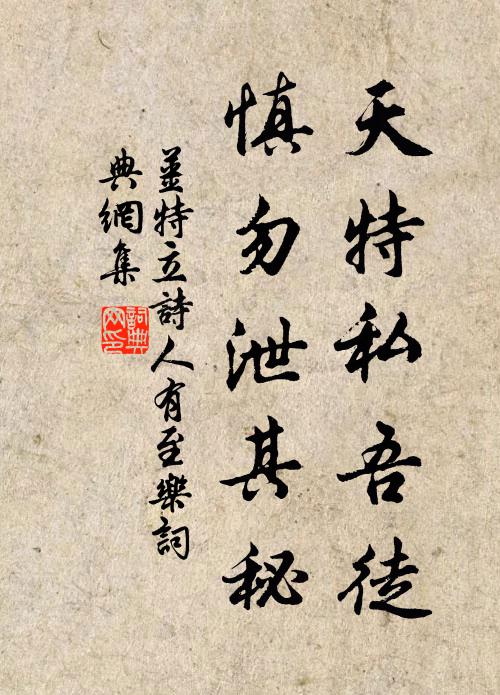 天特私吾徒
慎勿泄其秘
姜特立詩人有至樂詞
典網集
詞典
网印